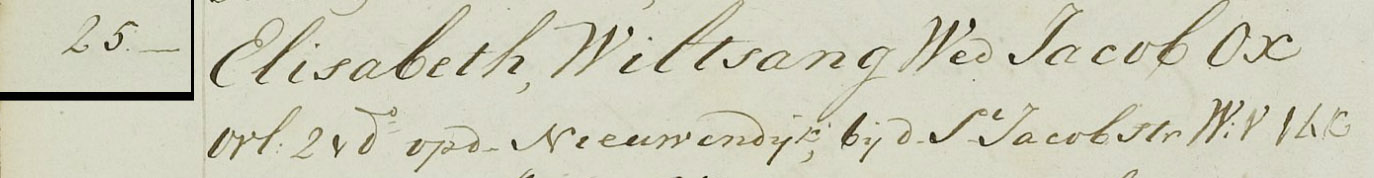 25.— Elisabeth, Wiltsang Wed Jacob Ox
ovl: 2 v d° opd Nieuwendijk, bij d St Jacobstr W:V 1 K K